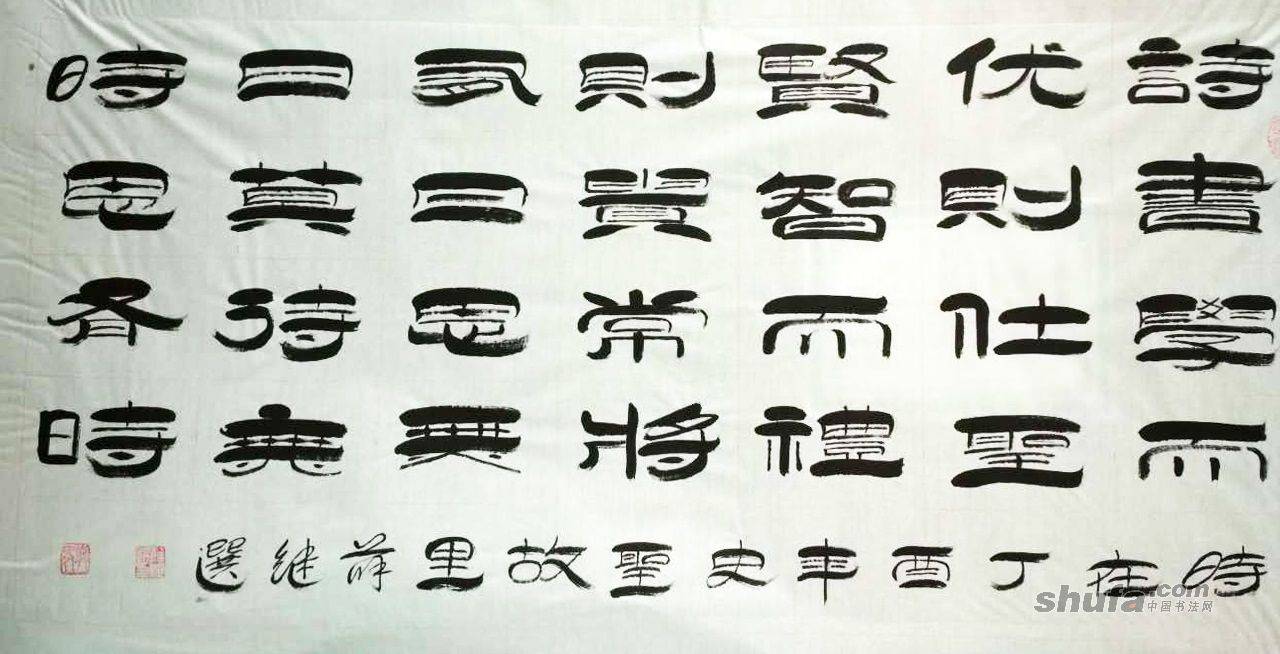 詩書學而
优則仕聖
賢智而禮
則貴常將
有日思無
日莫待無
時思有時
時在丁酉年史聖故里薛继選
shufa.com
中国书法网